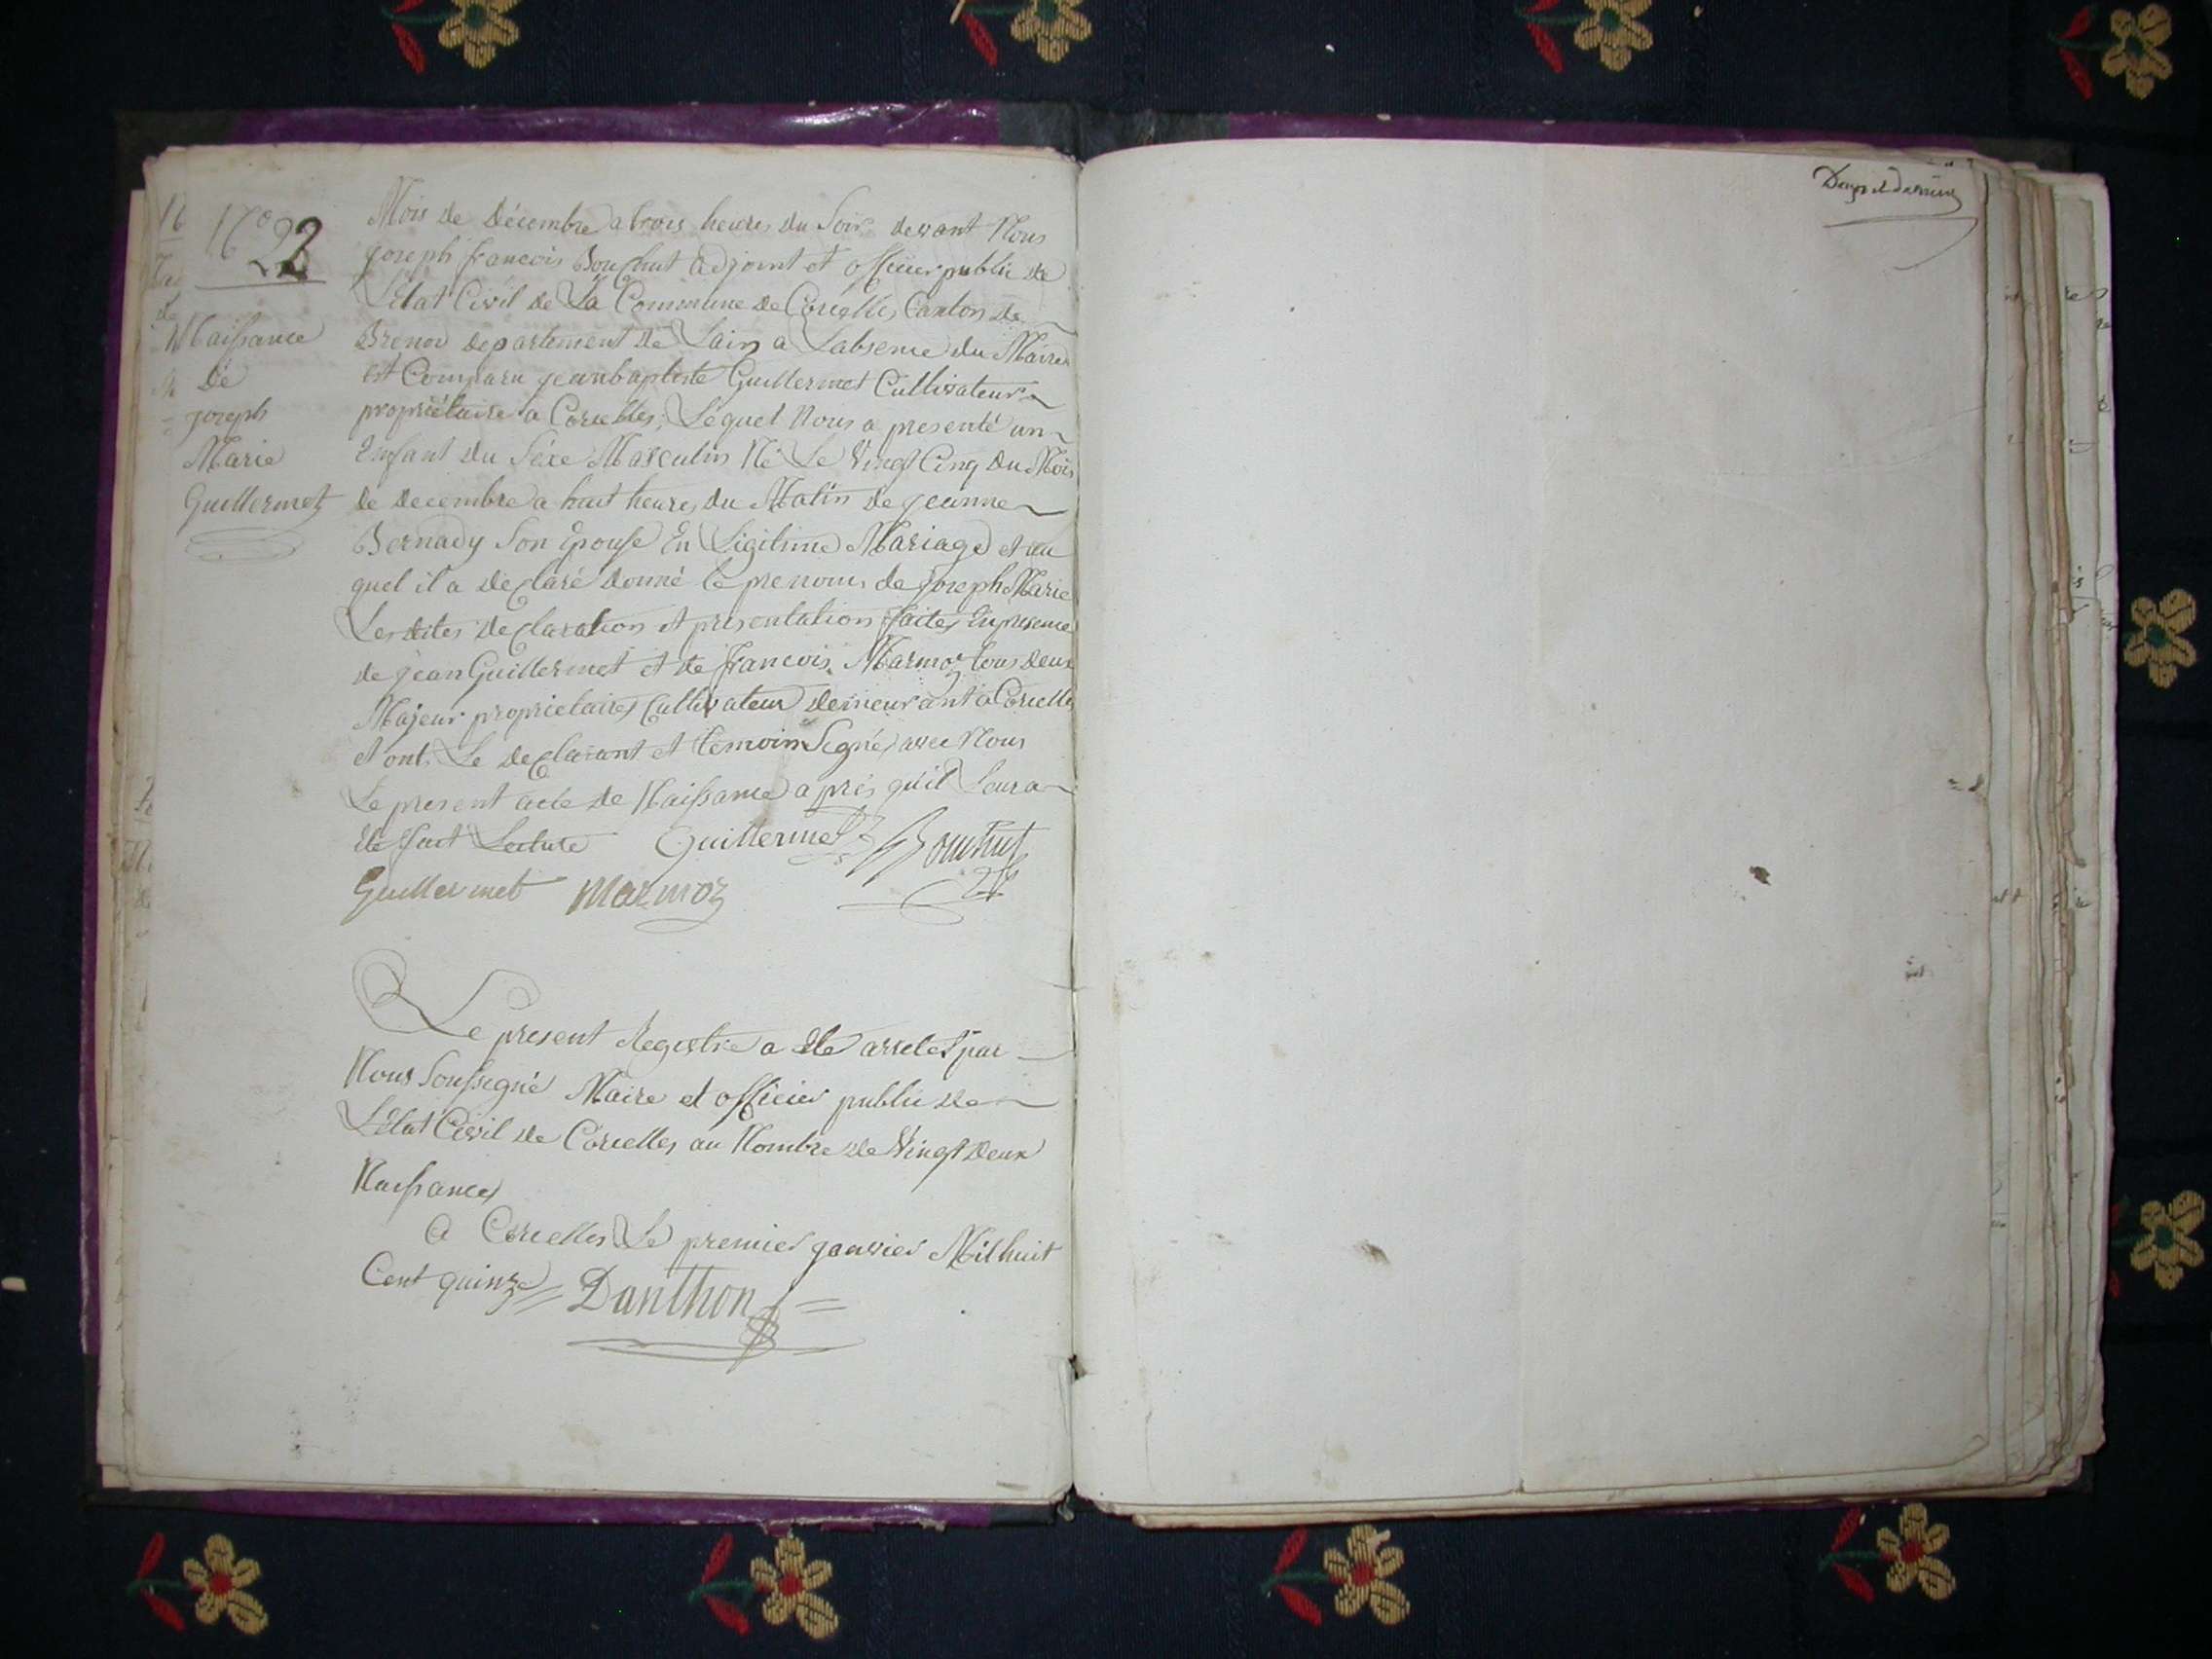 N.º 22
Naissance
de
joseph
Marie
Guillermet
Mois de Décembre a trois heures du Soir devant Nous
joseph francois Bouchut adjoint et officier public de
L'état Civil de La Commune de Corcelles Canton de
Brenod departement de Lain a Labsence du Maire
est Comparu jeanbaptiste Guillermet Cultivateur
propriétaire a Corcelles, Lequel Nous a presenté un
Enfant du Séxe Masculin Né Le Vingt Cinq du Mois
de decembre a huit heures du Matin de jeanne
Bernady Son Epouse En Ligitime Mariage et au
quel il a déclaré donné le prenoms de joseph Marie
Les dites declaration et presentation faites En presence
de jean Guillermet et de francois Marmoz tous deux
Majeur propriétaires Cultivateur demeurant a Corcelles
et ont Le declarant et temoins Segné avec Nous
Le present acte de Naissance aprés qu'il Leur a
été fait Lecture Guillermet Bouchut
Guillermet Marmoz
Le present Registre a été arretet par
Nous Soussegné Maire et officier public de
L'état Civil de Corcelles au Nombre de Vingt Deux
Naissances
a Corcelles Le premier janvier Mil huit
Cent quinze Danthon